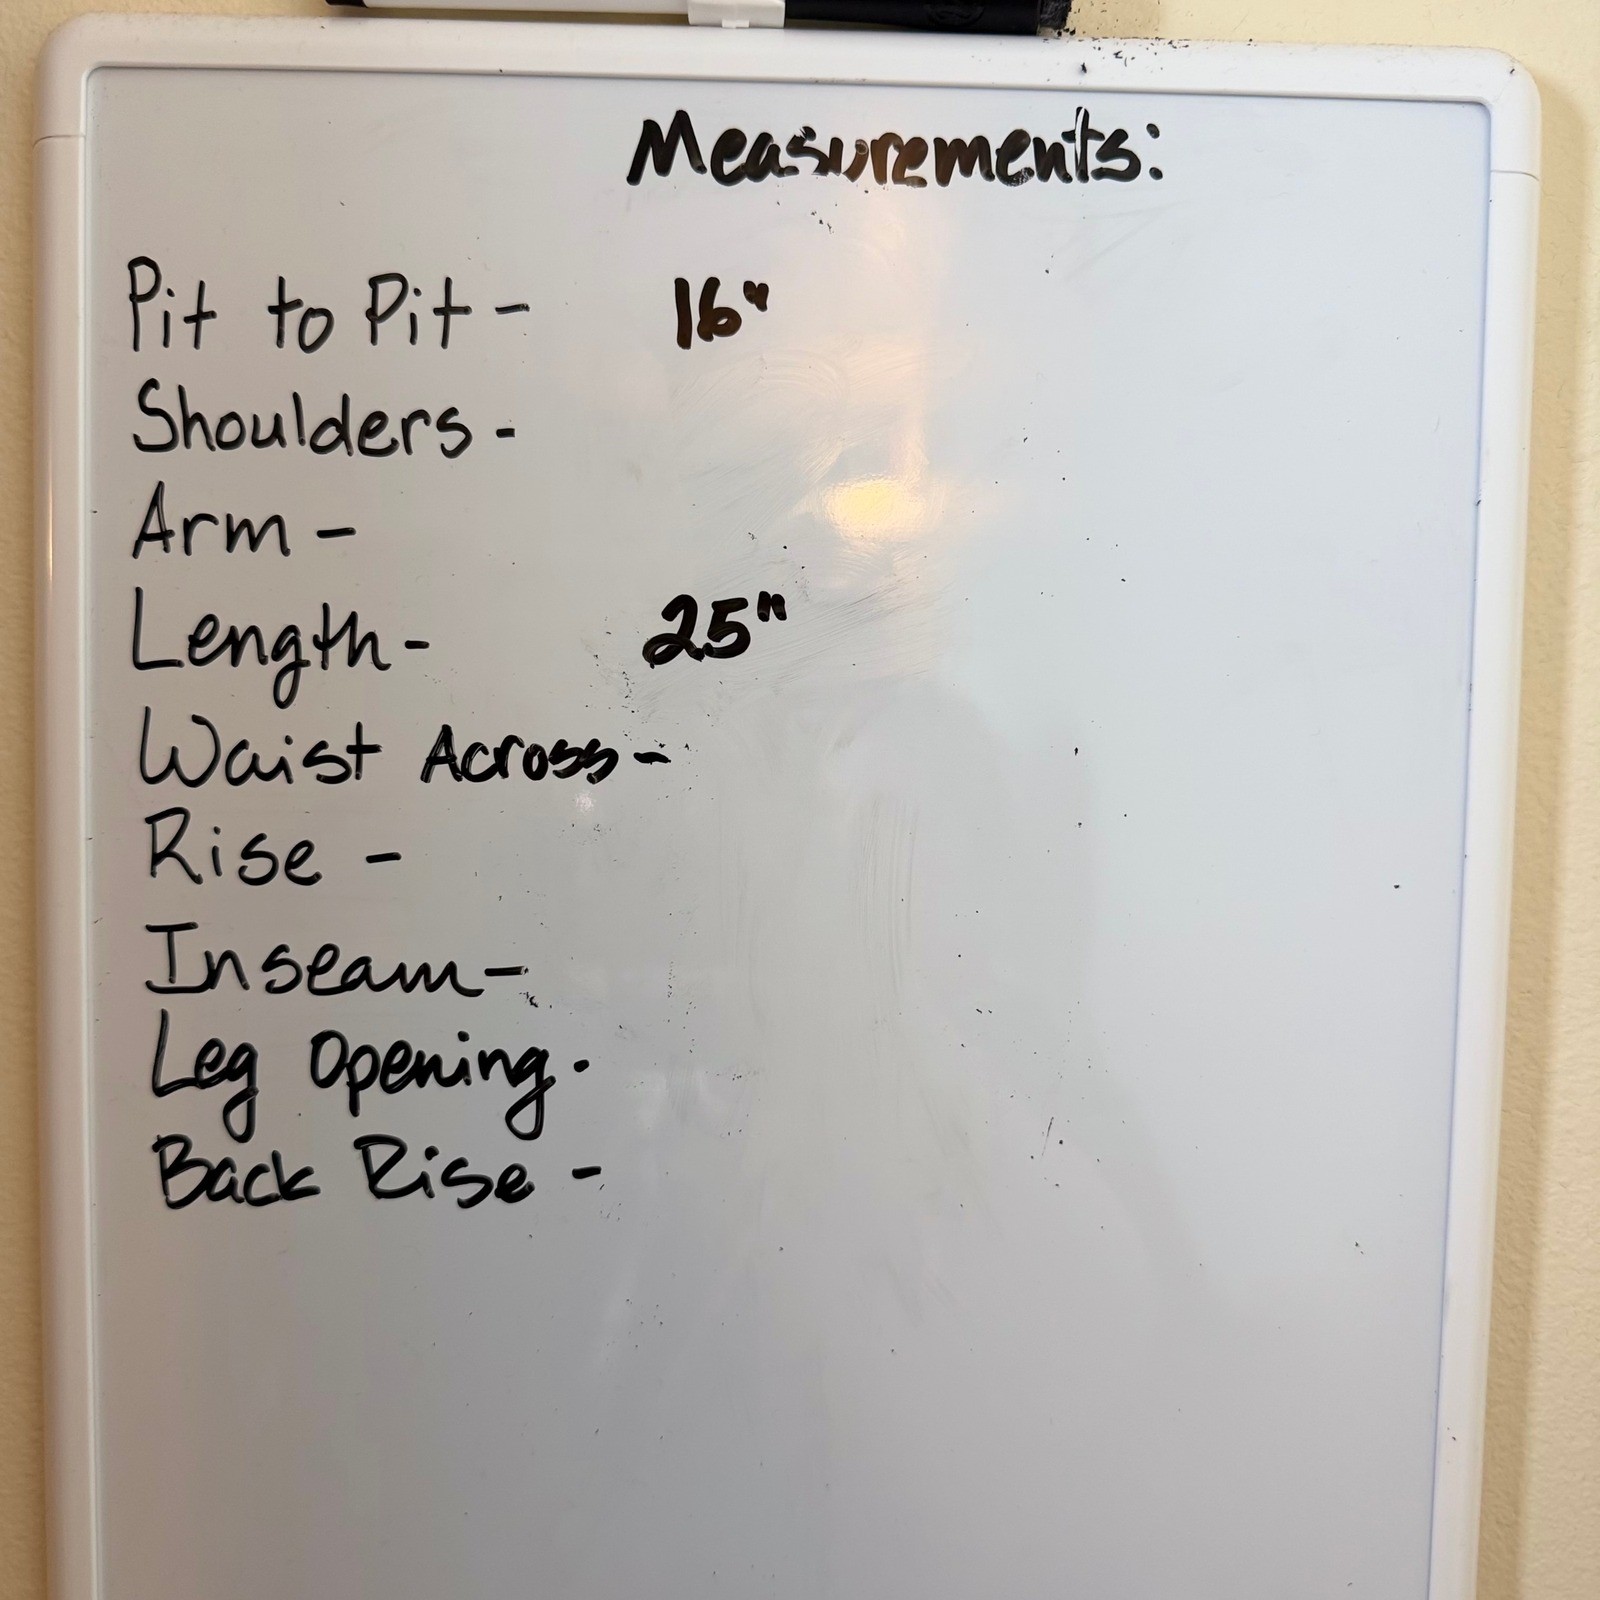 Measurements:
Pit to Pit - 16"
Shoulders -
Arm -
Length - 25"
Waist Across -
Rise -
Inseam -
Leg Opening -
Back Rise -